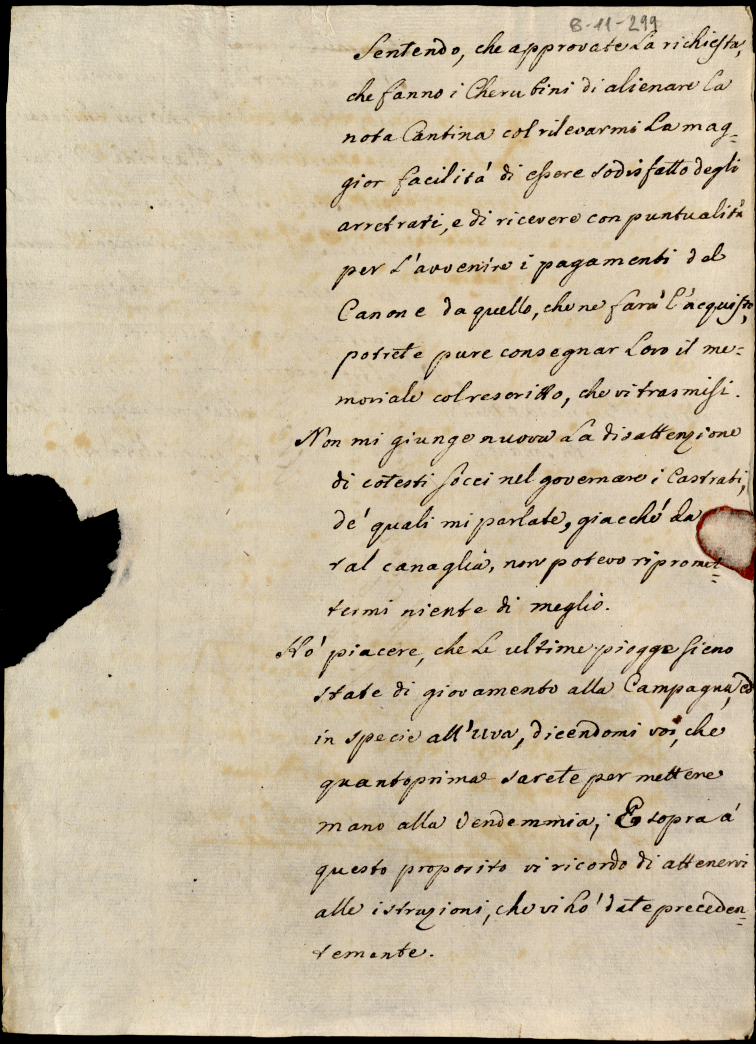 8-11-299
Sentendo, che approvate La richiesta,
che fanno i Cherubini di alienare La
nota Cantina col rilevarmi La mag=
gior facilità di essere sodisfatto degli
arretrati, e di ricevere con puntualità
per L'avvenire i pagamenti del
Canone da quello, che ne farà l'acquisto,
potrete pure consegnar Loro il me=
moriale col rescritto, che vi trasmisi.
Non mi giunge nuova La disattenzione
di cotesti Socci nel governare i Castrati,
de' quali mi parlate, giacché da
tal canaglia, non potevo ripromet=
termi niente di meglio.
Hò piacere, che Le ultime piogge sieno
state di giovamento alla Campagna, ed
in specie all'Uva, dicendomi voi, che
quantoprima sarete per mettere
mano alla Vendemmia; E sopra à
questo proposito vi ricordo di attenervi
alle istruzioni, che vi hò date preceden=
temente.